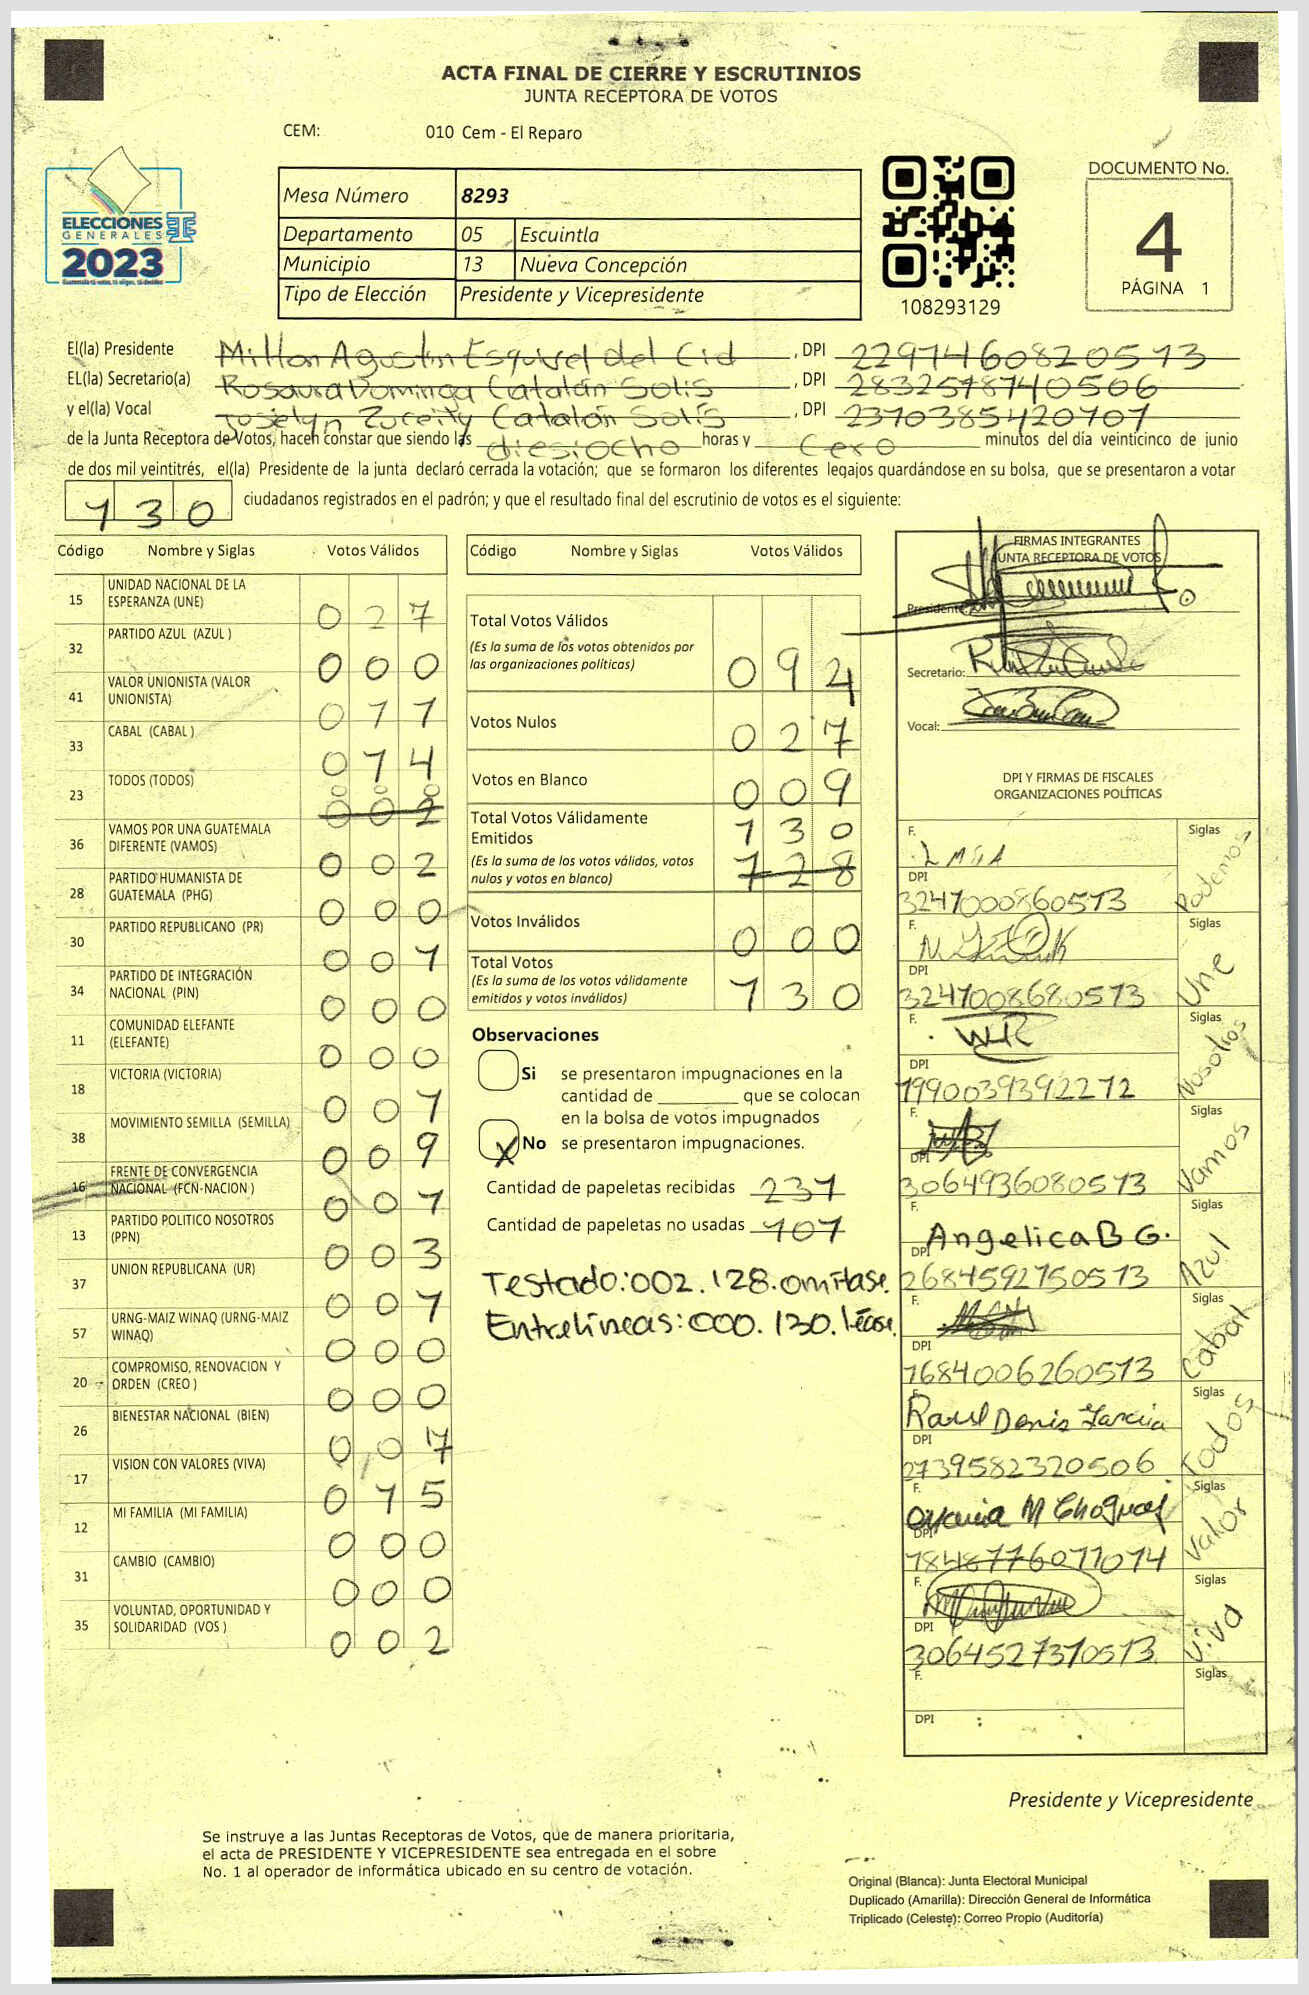 ACTA FINAL DE CIERRE Y ESCRUTINIOS
JUNTA RECEPTORA DE VOTOS
CEM: 010 Cem - El Reparo
ELECCIONES
GENERALES
2023
Mesa Número 8293
Departamento 05 Escuintla
Municipio 13 Nueva Concepción
Tipo de Elección Presidente y Vicepresidente
108293129
DOCUMENTO No.
4
PÁGINA 1
El(la) Presidente Milton Agustín Esquivel del Cid, DPI
EL(la) Secretario(a) Rosaura Dominga Catalán Solis, DPI
y el(la) Vocal Catalán Solís, DPI
de la Junta Receptora de Votos, hacen constar que siendo las diesiocho horas y cero minutos del día veinticinco de junio
de dos mil veintitrés, el(la) Presidente de la junta declaró cerrada la votación; que se formaron los diferentes legajos quardándose en su bolsa, que se presentaron a votar
130 ciudadanos registrados en el padrón; y que el resultado final del escrutinio de votos es el siguiente:
Código Nombre y Siglas Votos Válidos
15 UNIDAD NACIONAL DE LA ESPERANZA (UNE) 027
32 PARTIDO AZUL (AZUL ) 000
41 VALOR UNIONISTA (VALOR UNIONISTA) 011
33 CABAL (CABAL ) 014
23 TODOS (TODOS) 000 002
36 VAMOS POR UNA GUATEMALA DIFERENTE (VAMOS) 002
28 PARTIDO HUMANISTA DE GUATEMALA (PHG) 000
30 PARTIDO REPUBLICANO (PR) 001
34 PARTIDO DE INTEGRACIÓN NACIONAL (PIN) 000
11 COMUNIDAD ELEFANTE (ELEFANTE) 000
18 VICTORIA (VICTORIA) 001
38 MOVIMIENTO SEMILLA (SEMILLA) 009
16 FRENTE DE CONVERGENCIA NACIONAL (FCN-NACION ) 001
13 PARTIDO POLITICO NOSOTROS (PPN) 003
37 UNION REPUBLICANA (UR) 001
57 URNG-MAIZ WINAQ (URNG-MAIZ WINAQ) 000
20 COMPROMISO, RENOVACION Y ORDEN (CREO ) 000
26 BIENESTAR NACIONAL (BIEN) 007
17 VISION CON VALORES (VIVA) 015
12 MI FAMILIA (MI FAMILIA) 000
31 CAMBIO (CAMBIO) 000
35 VOLUNTAD, OPORTUNIDAD Y SOLIDARIDAD (VOS ) 002
Código Nombre y Siglas Votos Válidos
Total Votos Válidos 094
(Es la suma de los votos obtenidos por
las organizaciones políticas)
Votos Nulos 027
Votos en Blanco 009
Total Votos Válidamente Emitidos 130
(Es la suma de los votos válidos, votos
nulos y votos en blanco) 128
Votos Inválidos 000
Total Votos 130
(Es la suma de los votos válidamente
emitidos y votos inválidos)
Observaciones
Si se presentaron impugnaciones en la
cantidad de ________ que se colocan
en la bolsa de votos impugnados
X No se presentaron impugnaciones.
Cantidad de papeletas recibidas 237
Cantidad de papeletas no usadas 107
Testado:002.128.omitase.
Entrelíneas:000.130.léase.
FIRMAS INTEGRANTES
JUNTA RECEPTORA DE VOTOS
Presidente:
Secretario:
Vocal:
DPI Y FIRMAS DE FISCALES
ORGANIZACIONES POLÍTICAS
F. Siglas Podemos
DPI
F. Siglas Une
DPI
F. Siglas Nosotros
DPI
F. Siglas Vamos
DPI 3064936080513
F. Angelica B G. Siglas Azul
DPI
F. Siglas Cabal
DPI 1684006260513
F. Raul Denis Garcia Siglas Todos
DPI 2739582320506
F. Siglas Valor
DPI
F. Siglas Viva
DPI
F. Siglas
DPI
Presidente y Vicepresidente
Se instruye a las Juntas Receptoras de Votos, que de manera prioritaria,
el acta de PRESIDENTE Y VICEPRESIDENTE sea entregada en el sobre
No. 1 al operador de informática ubicado en su centro de votación.
Original (Blanca): Junta Electoral Municipal
Duplicado (Amarilla): Dirección General de Informática
Triplicado (Celeste): Correo Propio (Auditoría)